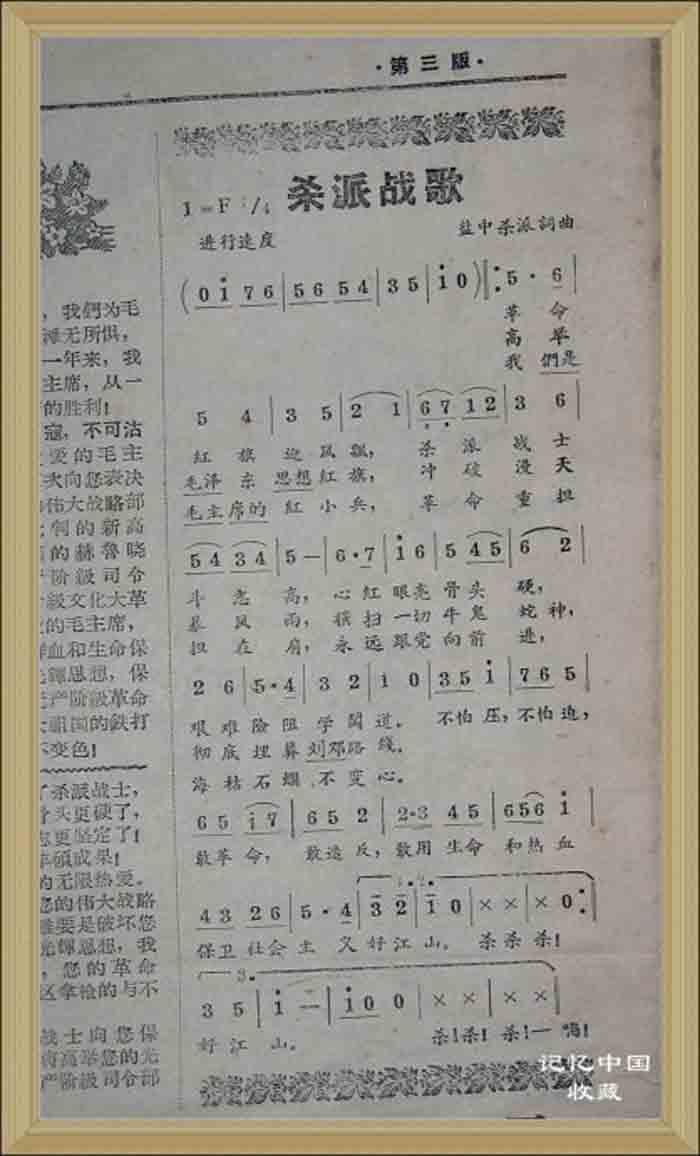 ·第三版·
杀派战歌
1=F 2/4
进行速度
盐中杀派詞曲
(0 i 7 6 | 5 6 5 4 | 3 5 | i 0) ‖: 5 · 6
革 命
高 举
我 們是
5 4 | 3 5 | 2 1 | 6 7 1 2 | 3 6
紅 旗 迎 风飘, 杀 派 战 士
毛泽 东 思想 红旗, 冲 破 漫 天
毛主席的 紅小兵, 革 命 重 担
5 4 3 4 | 5 — | 6·7 | i 6 | 5 4 5 | 6 2
斗 志 高, 心 紅 眼亮 骨头 硬,
暴 风 雨, 横扫 一切 牛鬼 蛇神,
担 在 肩, 永远 跟党 向前 进,
2 6 | 5·4 | 3 2 | 1 0 | 3 5 i | 7 6 5
艰难险阻学闖道。 不怕压,不怕迫,
彻底埋葬刘邓路线。
海枯石爛不变心。
6 5 i 7 | 6 5 2 | 2·3 4 5 | 6 5 6 i
敢革命, 敢造反,敢用生命 和热血
4 3 2 6 | 5·4 | 3 2 | 1 0 | × × | × 0 :‖
保卫社会主义好江山。 杀杀杀!
3.
3 5 | i — | i 0 0 | × × | × ×
好江山。 杀!杀!杀!一嗬!
,我們为毛
滩无所惧,
一年来,我
主席,从一
的胜利!
寇,不可沽
爱的毛主
次向您表决
伟大战略部
判的新高
的赫鲁晓
阶級司令
級文化大革
的毛主席,
鲜血和生命保
輝思想,保
无产阶级革命
祖国的鉄打
不变色!
了杀派战士,
骨头更硬了,
志更坚定了!
丰碩成果!
的无限热爱。
您的伟大战略
谁要是破坏您
光輝思想,我
,您的革命
区拿枪的与不
战士向您保
高举您的光
产阶級司令部
记忆中国
收藏